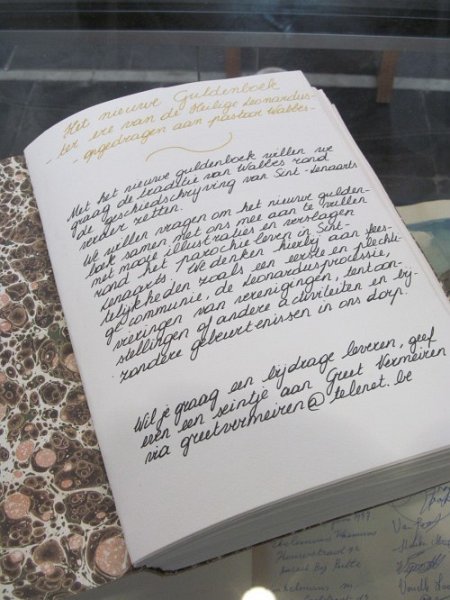 Het nieuwe Guldenboek
- ter ere van de Heilige Leonardus-
- opgedragen aan pastoor Walbes-
Met het nieuwe guldenboek willen we
graag de traditie van Walbes rond
de geschiedschrijving van Sint-Lenaarts
verder zetten.
We willen vragen om het nieuwe gulden-
boek samen met ons mee aan te vullen
met mooie illustraties en verslagen
rond het parochieleven in Sint-
Lenaarts. We denken hierbij aan fees-
telijkheden zoals een eerste en plechti-
ge communie, de Leonardusprocessie,
vieringen van verenigingen, tentoon-
stellingen of andere activiteiten en bij-
zondere gebeurtenissen in ons dorp.
Wil je graag een bijdrage leveren, geef
even een seintje aan Greet Vermeiren
via greetvermeiren@telenet.be